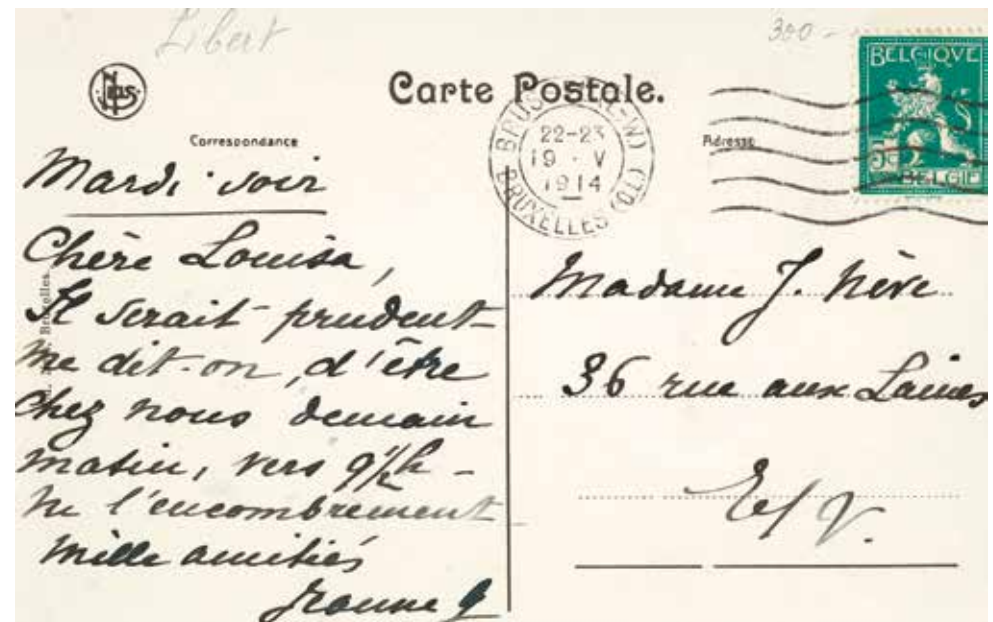 Libert
300-
BELGIQUE
BELGIE
Carte Postale.
Nels
Correspondance
Adresse
BRUSSEL
22-23
19 · V
1914
BRUXELLES (Q.L)
Mardi soir
Chère Louisa,
Il serait prudent
me dit-on, d'être
chez nous demain
matin, vers 9 1/2 h -
vu l'encombrement
Mille amitiés
Jeanne
Bruxelles.
Madame J. Nève
36 rue aux Laines
E/V.